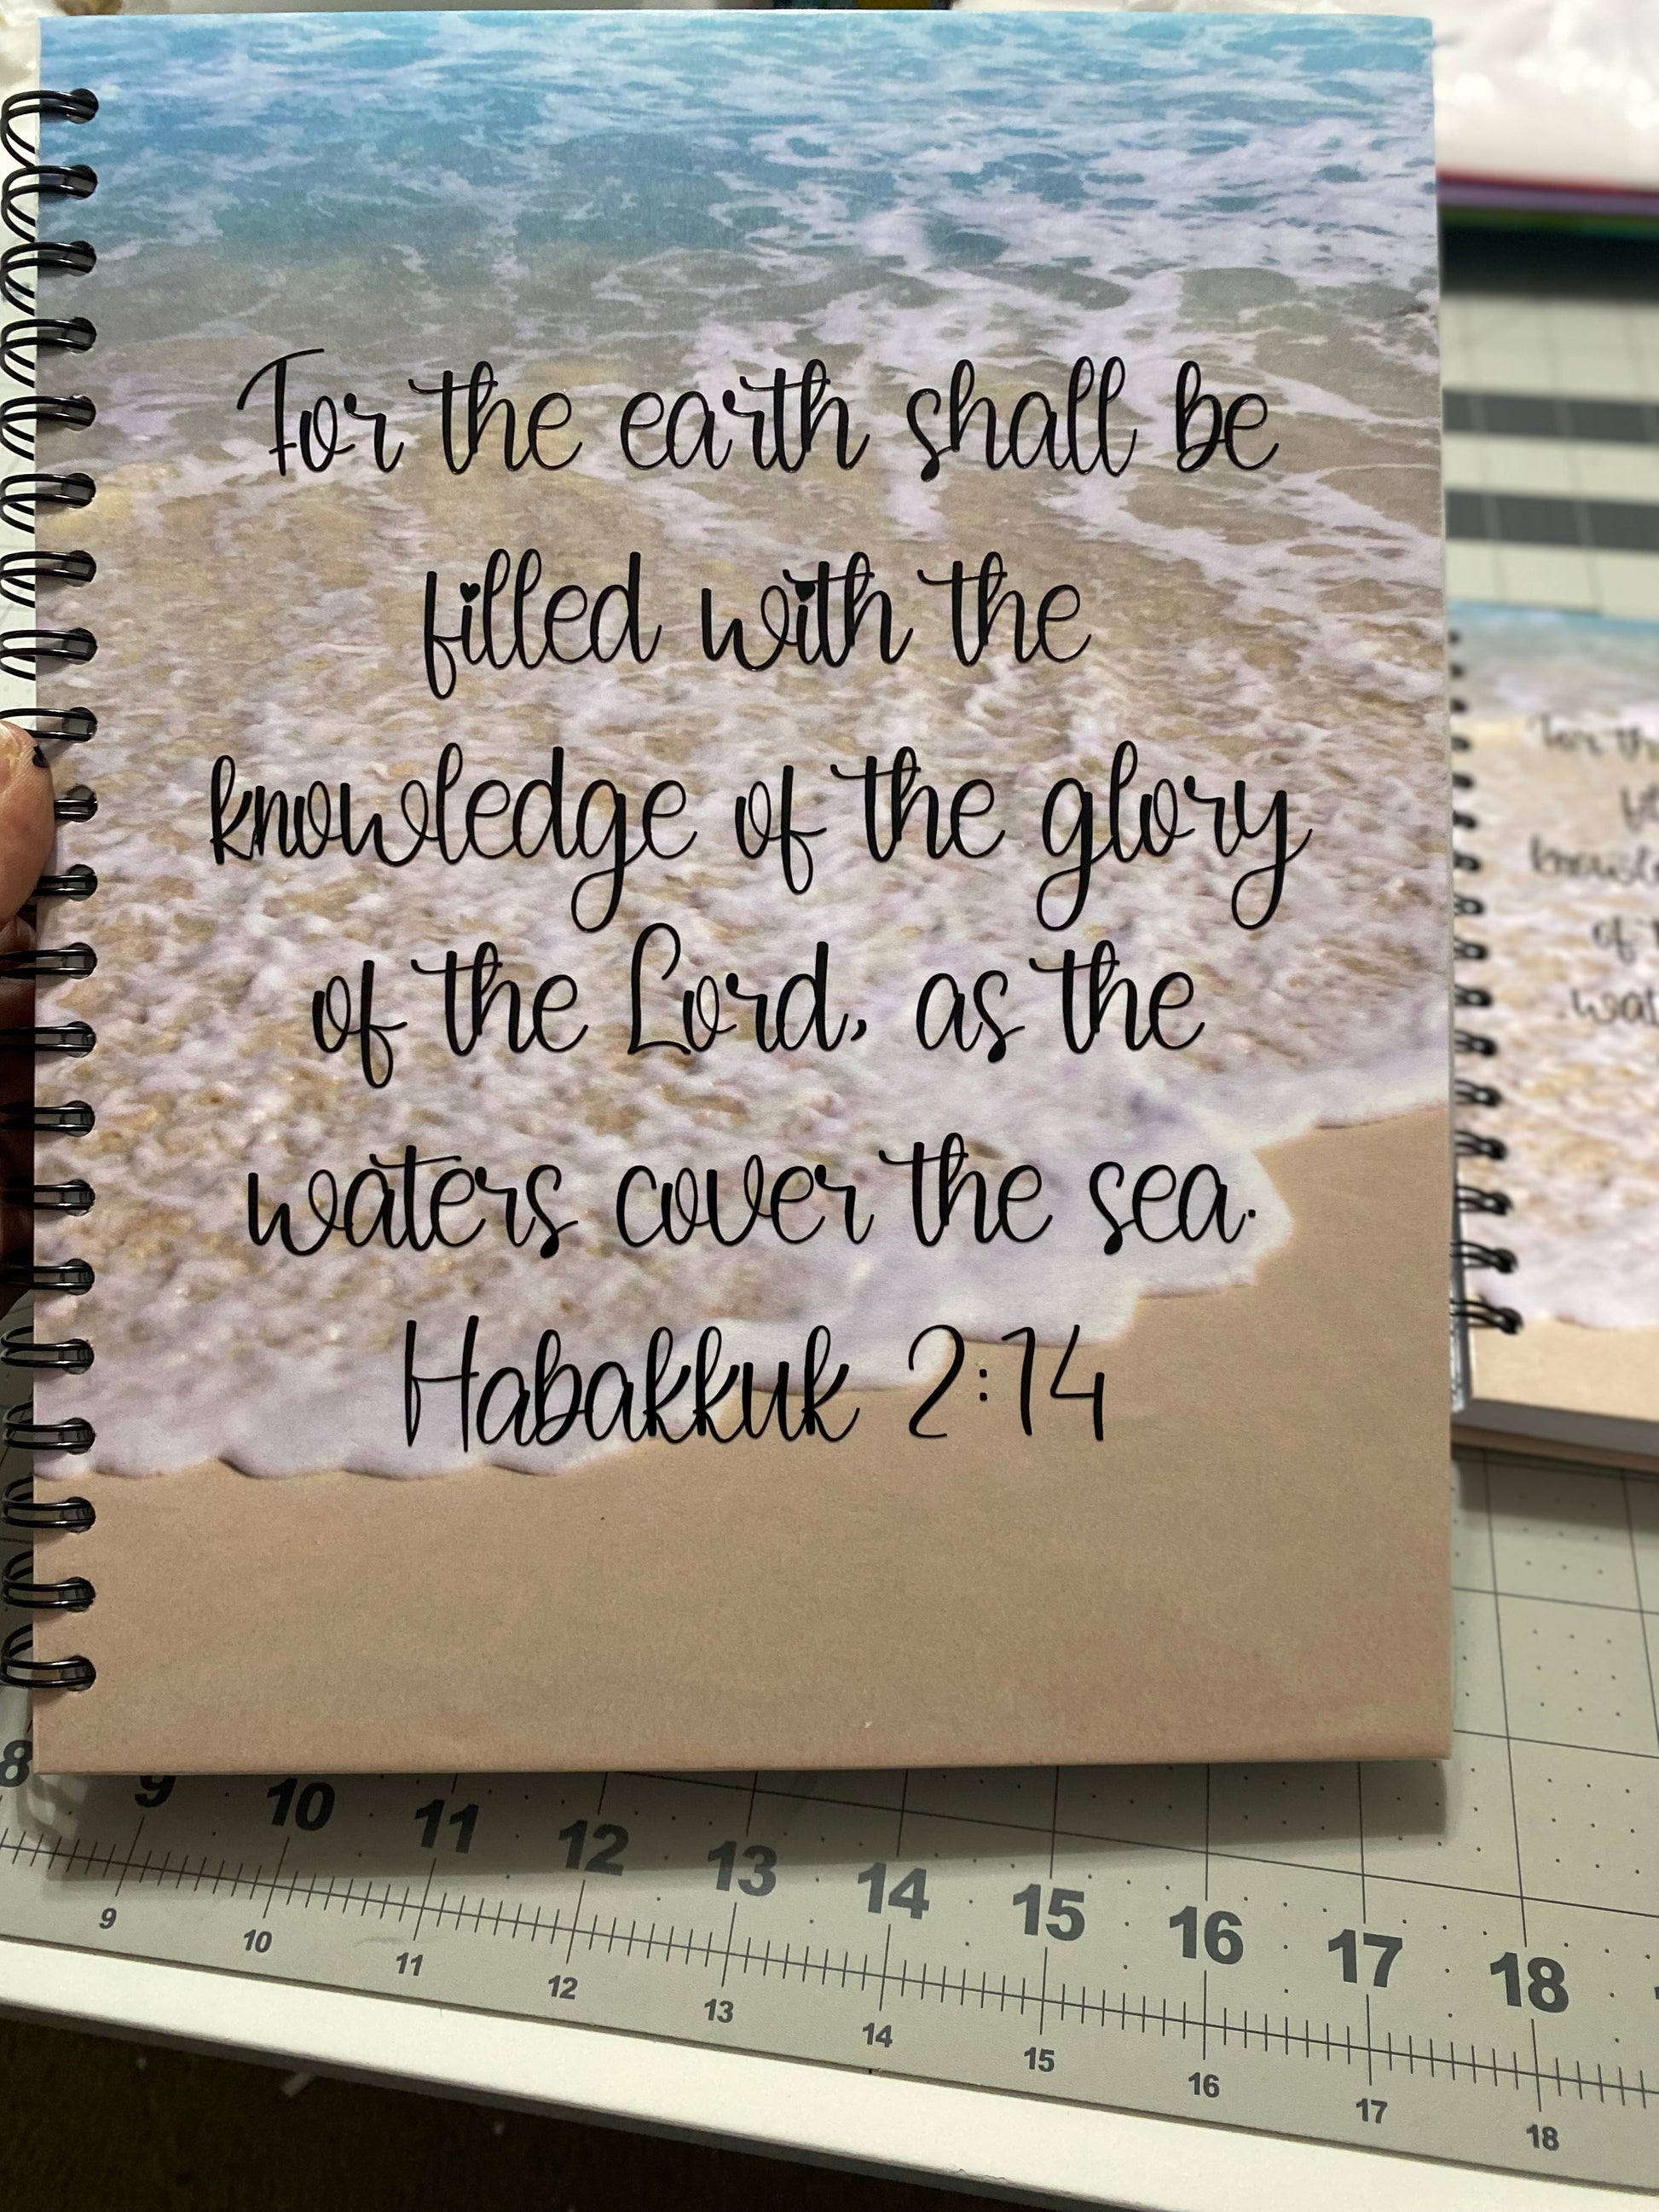 For the earth shall be
filled with the
knowledge of the glory
of the Lord, as the
waters cover the sea.
Habakkuk 2:14
For th
knowle
of t
wat
8 9 10 11 12 13 14 15 16 17 18
9 10 11 12 13 14 15 16 17 18